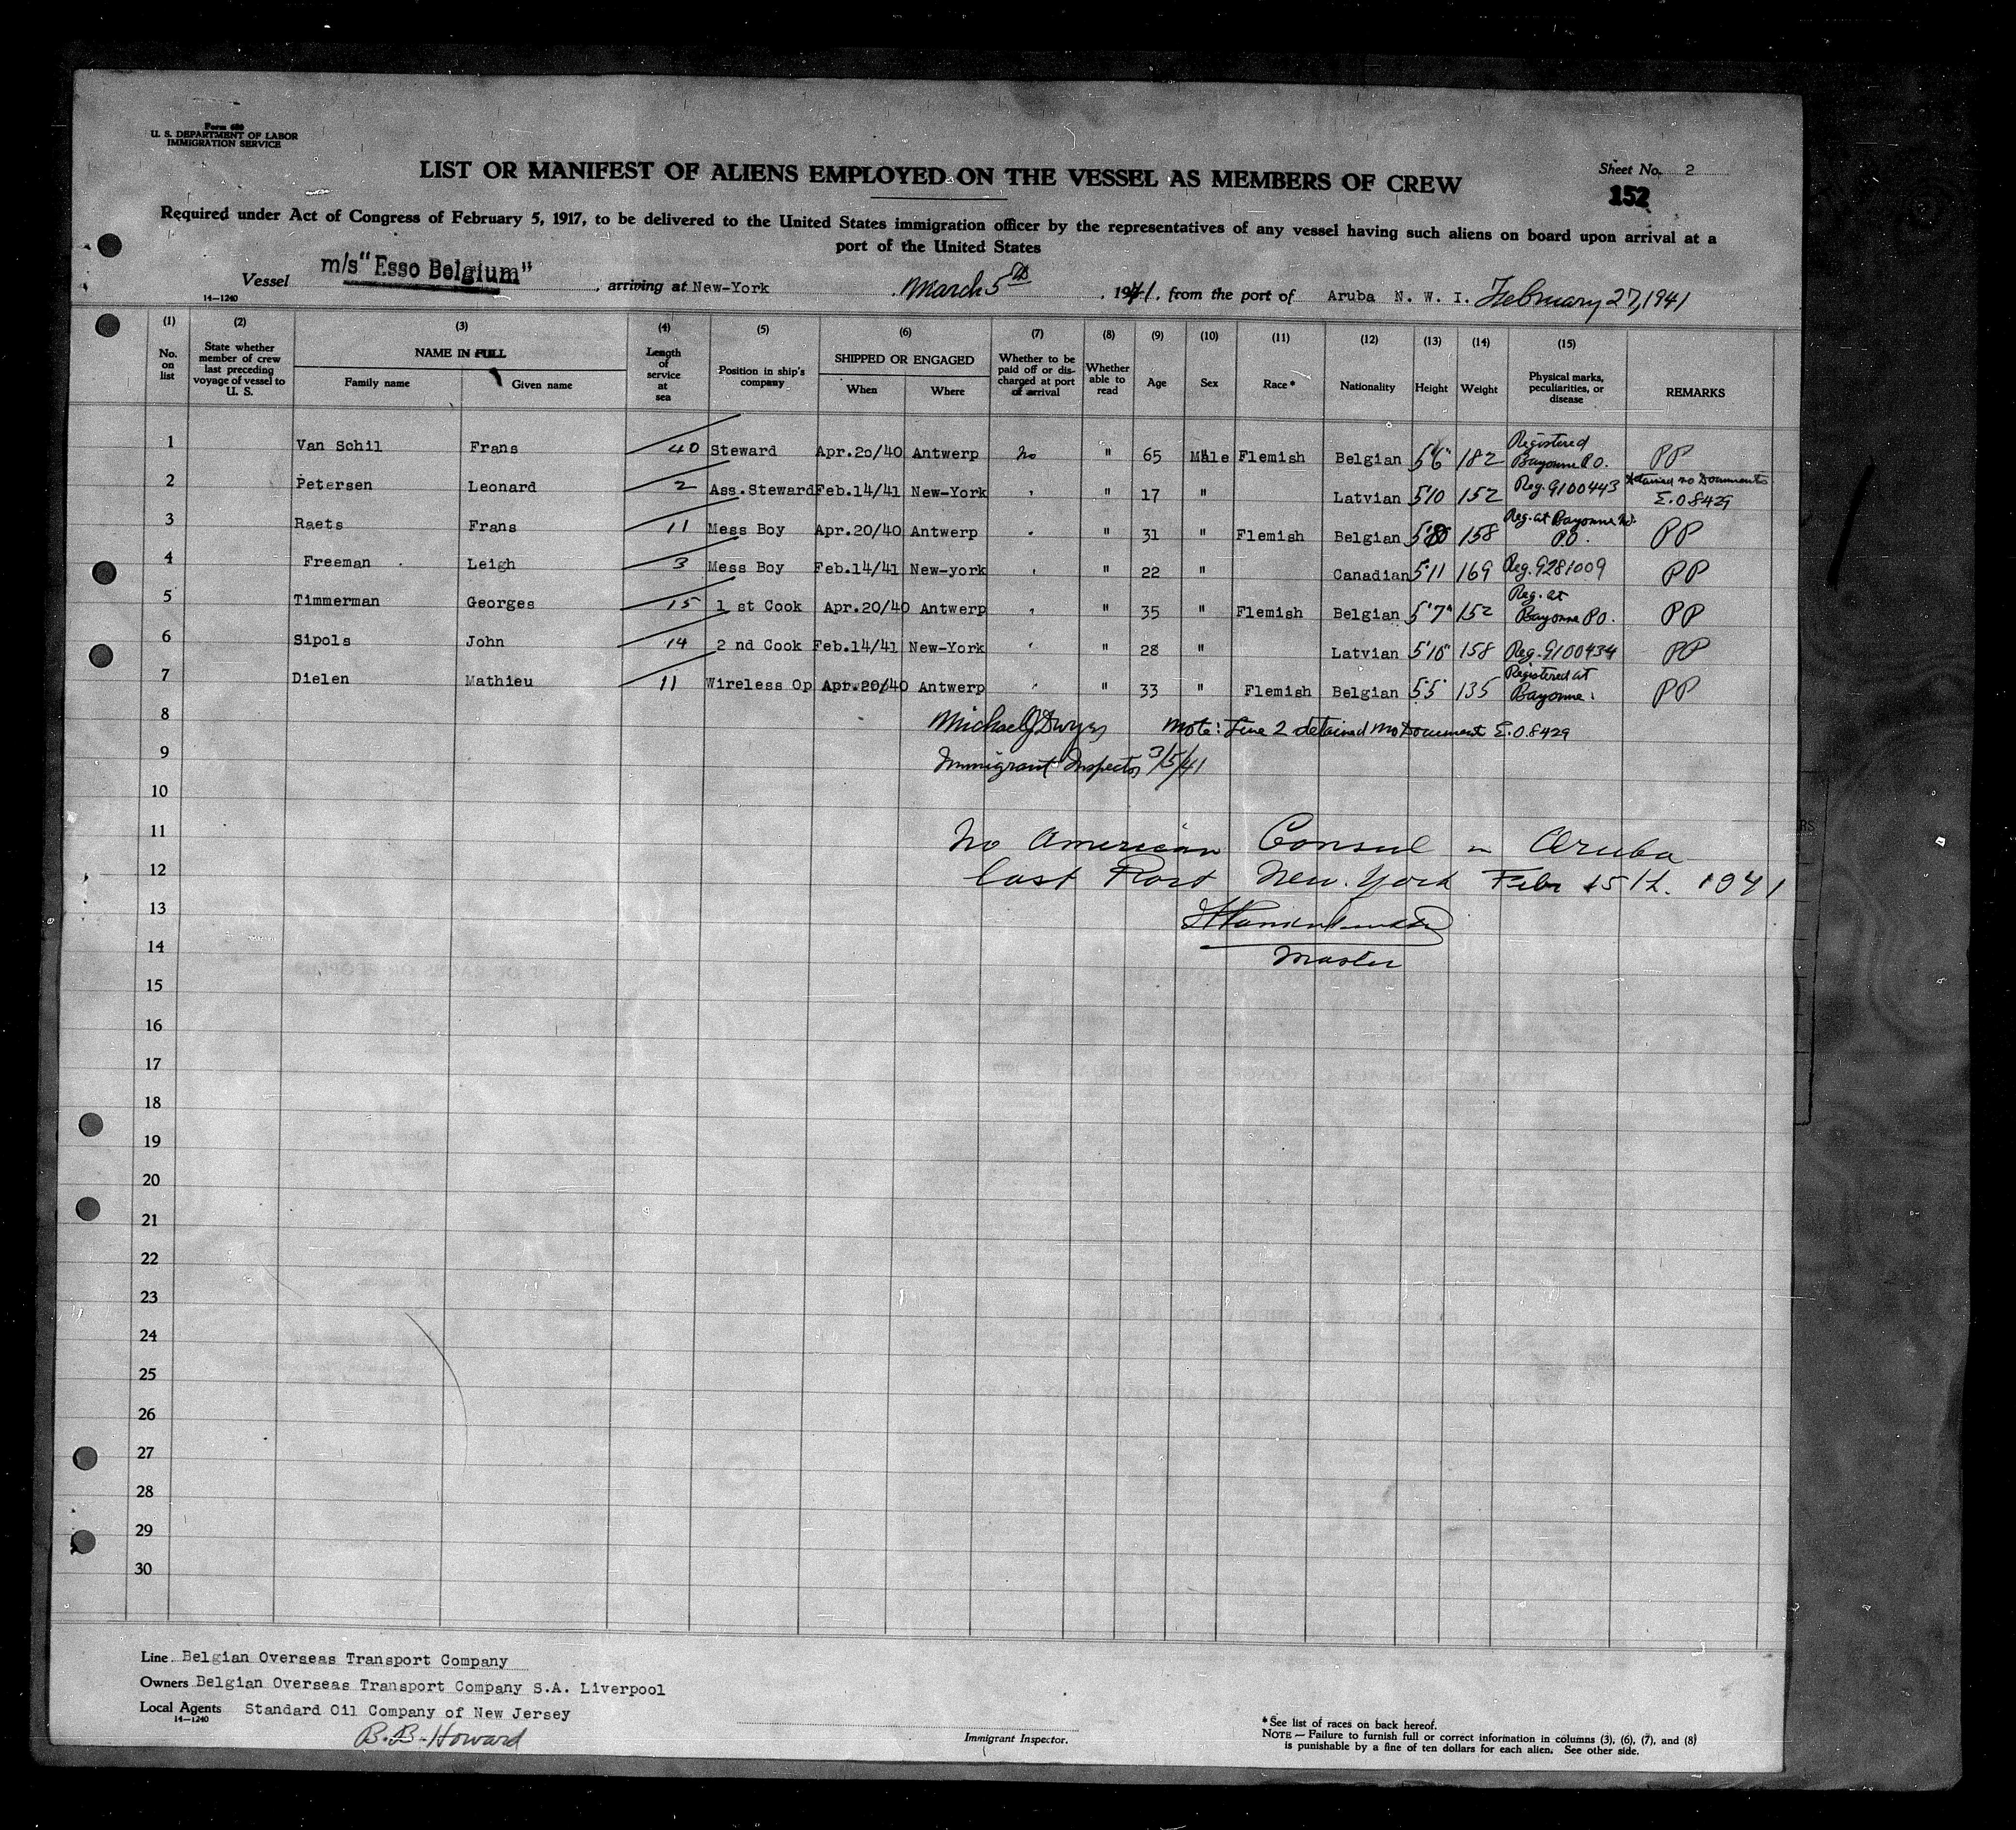 Form 680
U. S. DEPARTMENT OF LABOR
IMMIGRATION SERVICE
LIST OR MANIFEST OF ALIENS EMPLOYED ON THE VESSEL AS MEMBERS OF CREW
Sheet No. 2
152
Required under Act of Congress of February 5, 1917, to be delivered to the United States immigration officer by the representatives of any vessel having such aliens on board upon arrival at a
port of the United States
Vessel m/s "Esso Belgium", arriving at New-York, March 5th, 1941, from the port of Aruba N. W. I. February 27, 1941
14—1240
(1) (2) (3) (4) (5) (6) (7) (8) (9) (10) (11) (12) (13) (14) (15)
No. on list | State whether member of crew last preceding voyage of vessel to U. S. | NAME IN FULL Family name Given name | Length of service at sea | Position in ship's company | SHIPPED OR ENGAGED When Where | Whether to be paid off or discharged at port of arrival | Whether able to read | Age | Sex | Race* | Nationality | Height | Weight | Physical marks, peculiarities, or disease | REMARKS
1 Van Schil Frans 40 Steward Apr.20/40 Antwerp No " 65 Male Flemish Belgian 5'6" 182 Registered Bayonne P.O. PP
2 Petersen Leonard 2 Ass.Steward Feb.14/41 New-York " " 17 " Latvian 5'10 152 Reg. 9100443 detained no Documents E.O 8429
3 Raets Frans 11 Mess Boy Apr.20/40 Antwerp " " 31 " Flemish Belgian 158 Reg. at Bayonne N.J. P.O. PP
4 Freeman Leigh 3 Mess Boy Feb.14/41 New-york " " 22 " Canadian 5'11 169 Reg. 9281009 PP
5 Timmerman Georges 15 1 st Cook Apr.20/40 Antwerp " " 35 " Flemish Belgian 5'7" 152 Reg. at Bayonne P.O. PP
6 Sipols John 14 2 nd Cook Feb.14/41 New-York " " 28 " Latvian 5'10" 158 Reg. 9100434 PP
7 Dielen Mathieu 11 Wireless Op Apr.20/40 Antwerp " " 33 " Flemish Belgian 5'5" 135 Registered at Bayonne. PP
8 Michael J Dwyer Note: Line 2 detained No Document E.O.8429
9 Immigrant Inspector 3/5/41
10
11 No American Consul in Aruba
12 last Port New-York Febr 15th. 1941
13
14 Master
15
16
17
18
19
20
21
22
23
24
25
26
27
28
29
30
Line Belgian Overseas Transport Company
Owners Belgian Overseas Transport Company S.A. Liverpool
Local Agents Standard Oil Company of New Jersey
14—1240
B.B. Howard
Immigrant Inspector.
*See list of races on back hereof.
NOTE — Failure to furnish full or correct information in columns (3), (6), (7), and (8)
is punishable by a fine of ten dollars for each alien. See other side.